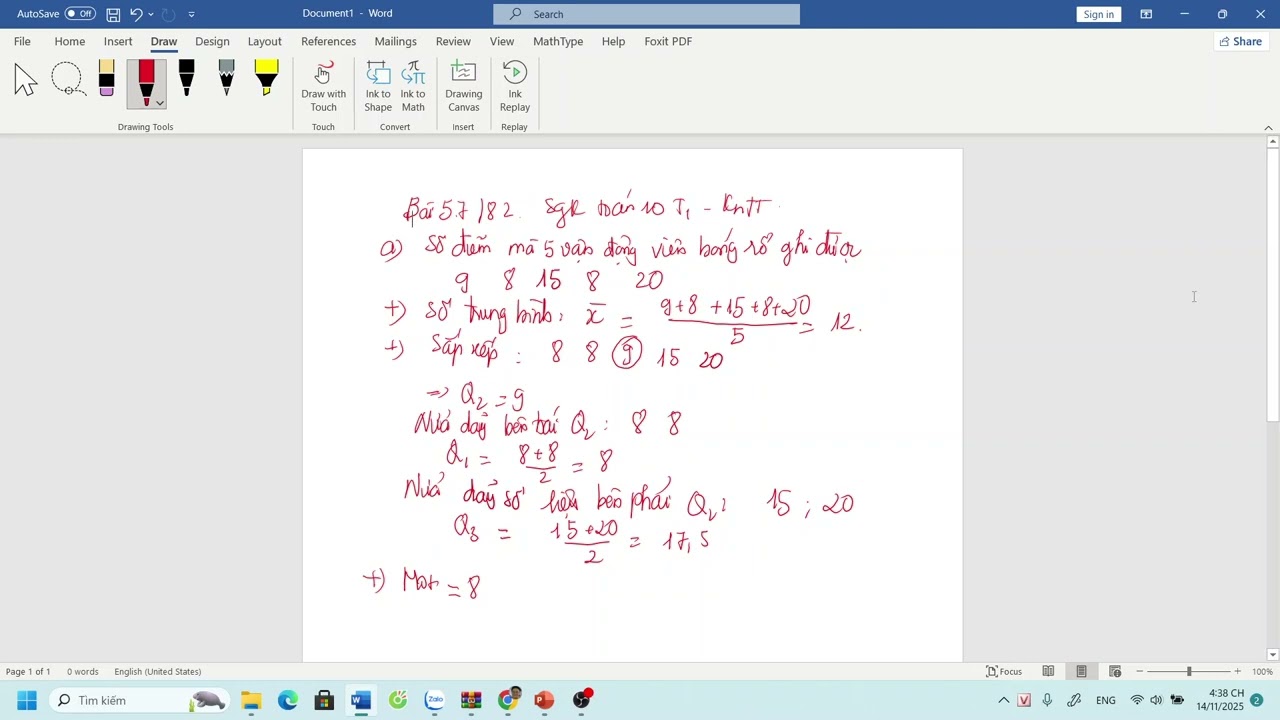 AutoSave Off Document1 - Word Search Sign in
File Home Insert Draw Design Layout References Mailings Review View MathType Help Foxit PDF Share
Draw with Touch Ink to Shape Ink to Math Drawing Canvas Ink Replay
Drawing Tools Touch Convert Insert Replay
Bài 5.7/82. Sgk toán 10 T1 - KNTT.
a) Số điểm mà 5 vận động viên bóng rổ ghi được
9 8 15 8 20
+) Số trung bình: x̄ = (9+8+15+8+20)/5 = 12.
+) Sắp xếp: 8 8 9 15 20
=> Q2 = 9
Nửa dãy bên trái Q2: 8 8
Q1 = (8+8)/2 = 8
Nửa dãy số liệu bên phải Q2: 15 ; 20
Q3 = (15+20)/2 = 17,5
+) Mốt = 8
Page 1 of 1 0 words English (United States) Focus 100%
Tìm kiếm Zalo ENG 4:38 CH
14/11/2025 2